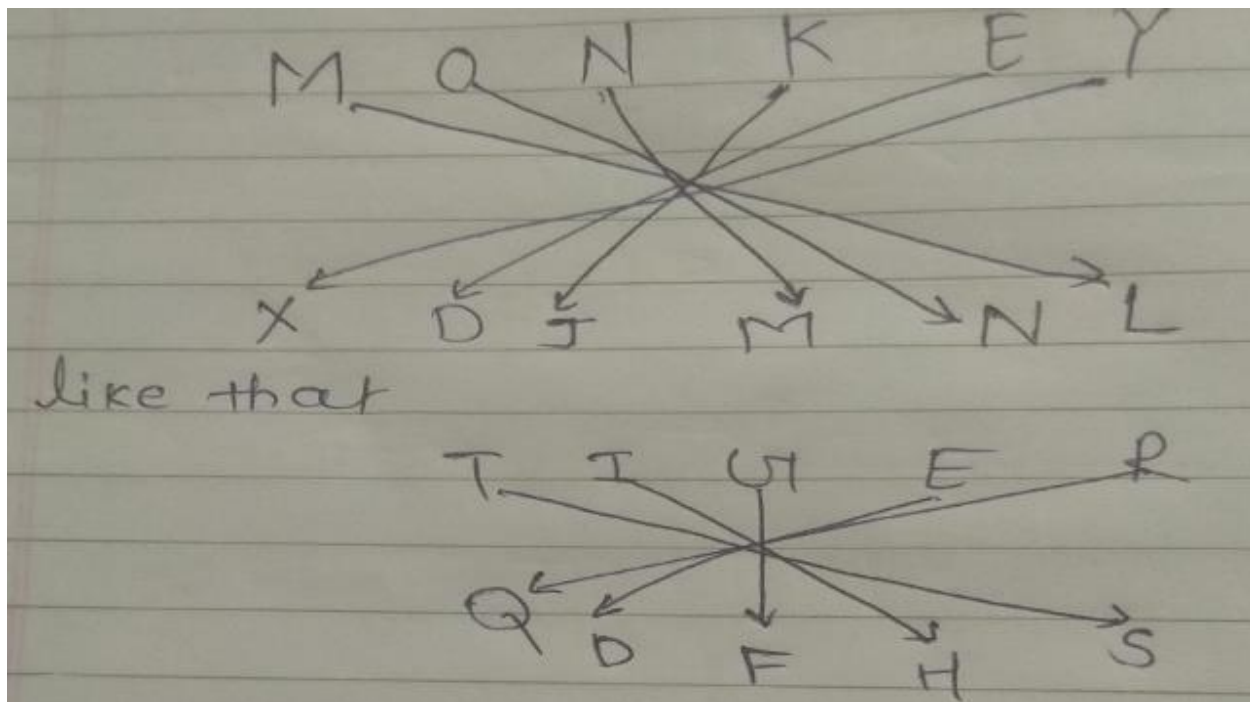 M O N K E Y
X D J M N L
like that
T I G E R
Q D F H S